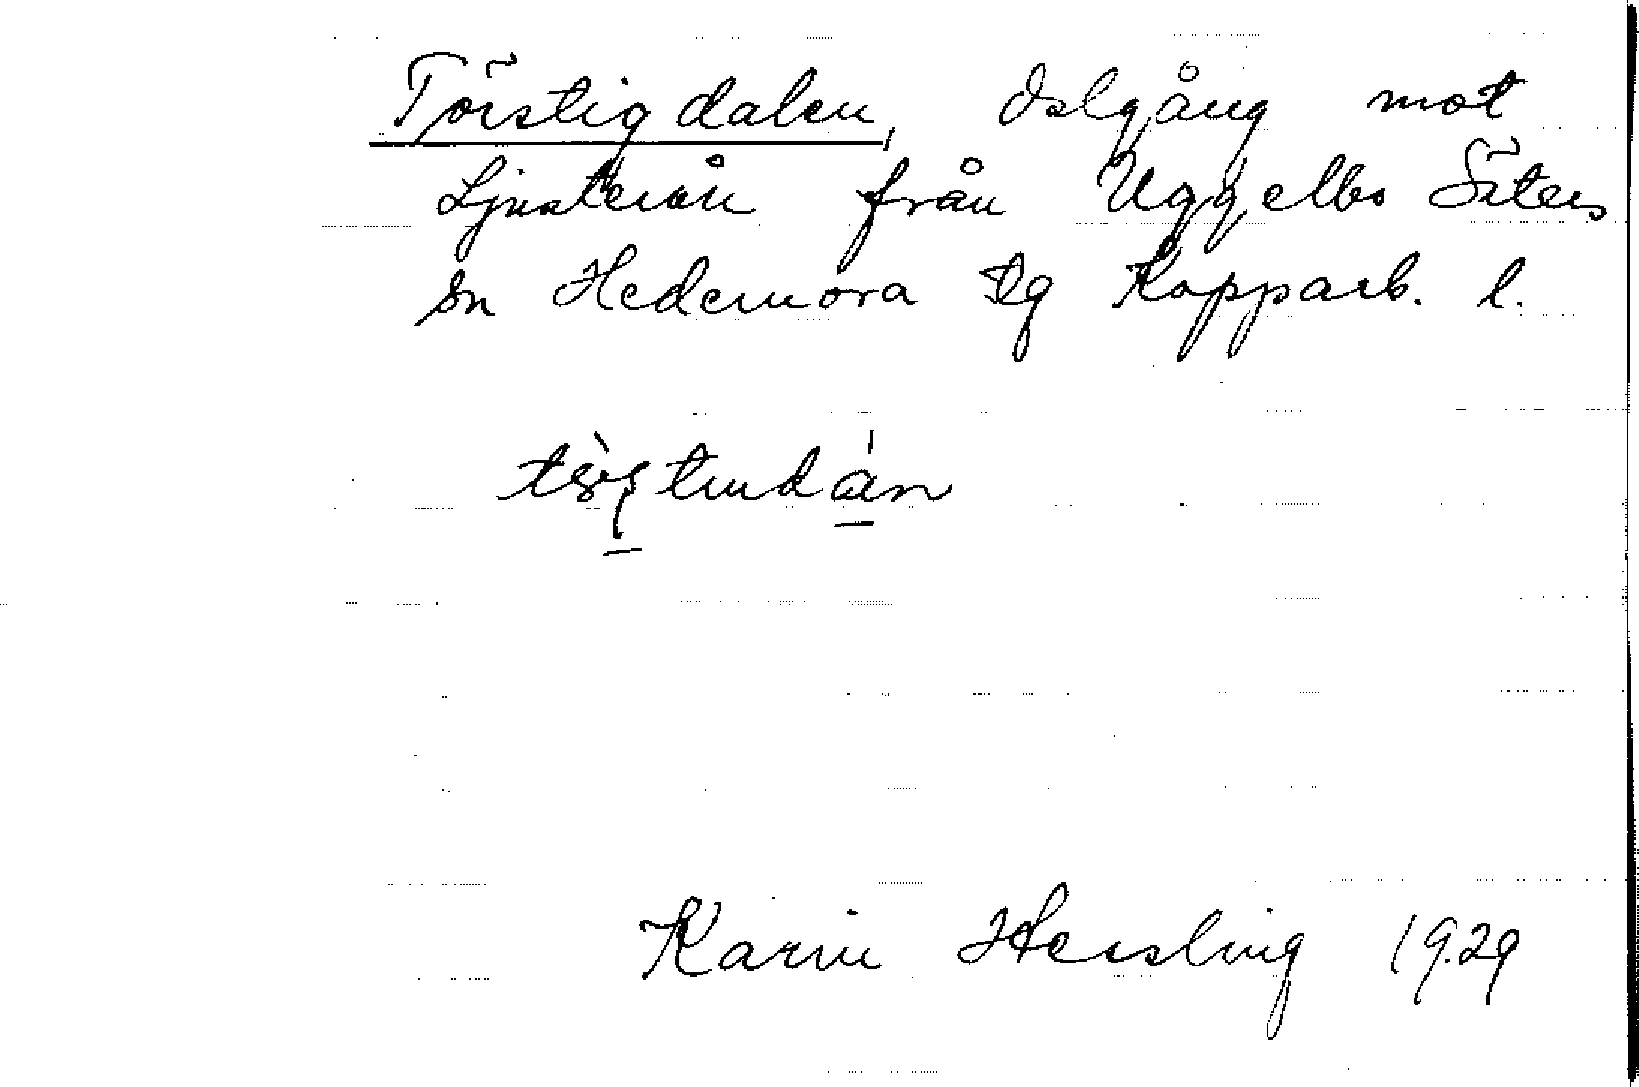 Törstigdalen, dalgång mot
Ljusterån från Uggelbo Säters
sn Hedemora tg Kopparb. l.
Karin Hersling 1929